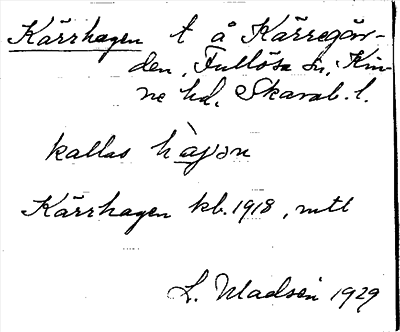 Kärrhagen t å Kärregår-
den, Fullösa sn, Kin-
ne hd, Skarab. l.
kallas hàgən
Kärrhagen kb. 1918, mtl
L. Madsén 1929